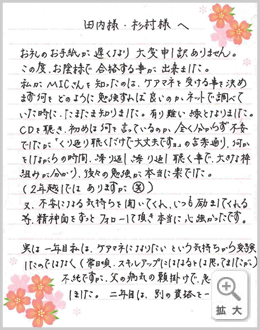 田内様・杉村様 へ
お礼のお手紙が遅くなり大変申し訳ありません。
この度、お陰様で合格する事が出来ました。
私がMICさんを知ったのは、ケアマネを受ける事を決め
ます何をどのように勉強すれば良いのか、ネットで調べて
いた時に、たまたま知りました。有り難い縁となりました。
CDを聴き、初めは何を言っているのか、全く分からず不安
でしたが「くり返し聴くだけで大丈夫」のお言葉通り、何か
をしながらの時間、繰り返し繰り返し聴く事で、大切な枠
組みが分かり、後々の勉強が本当に楽でした。
(2年越しではありますが 笑)
又、不安になる気持ちを聞いてくれ、いつも励ましてくれる
等、精神面をずっとフォローして頂き本当に心強かったです。
実は一年目私は、ケアマネになりたいという気持ちから受験
したのではなく(常日頃、スキルアップにはなるとは思ってましたが)
不純ですが、父の病気の願掛けで、
しました。二年目は、別の資格を
拡大